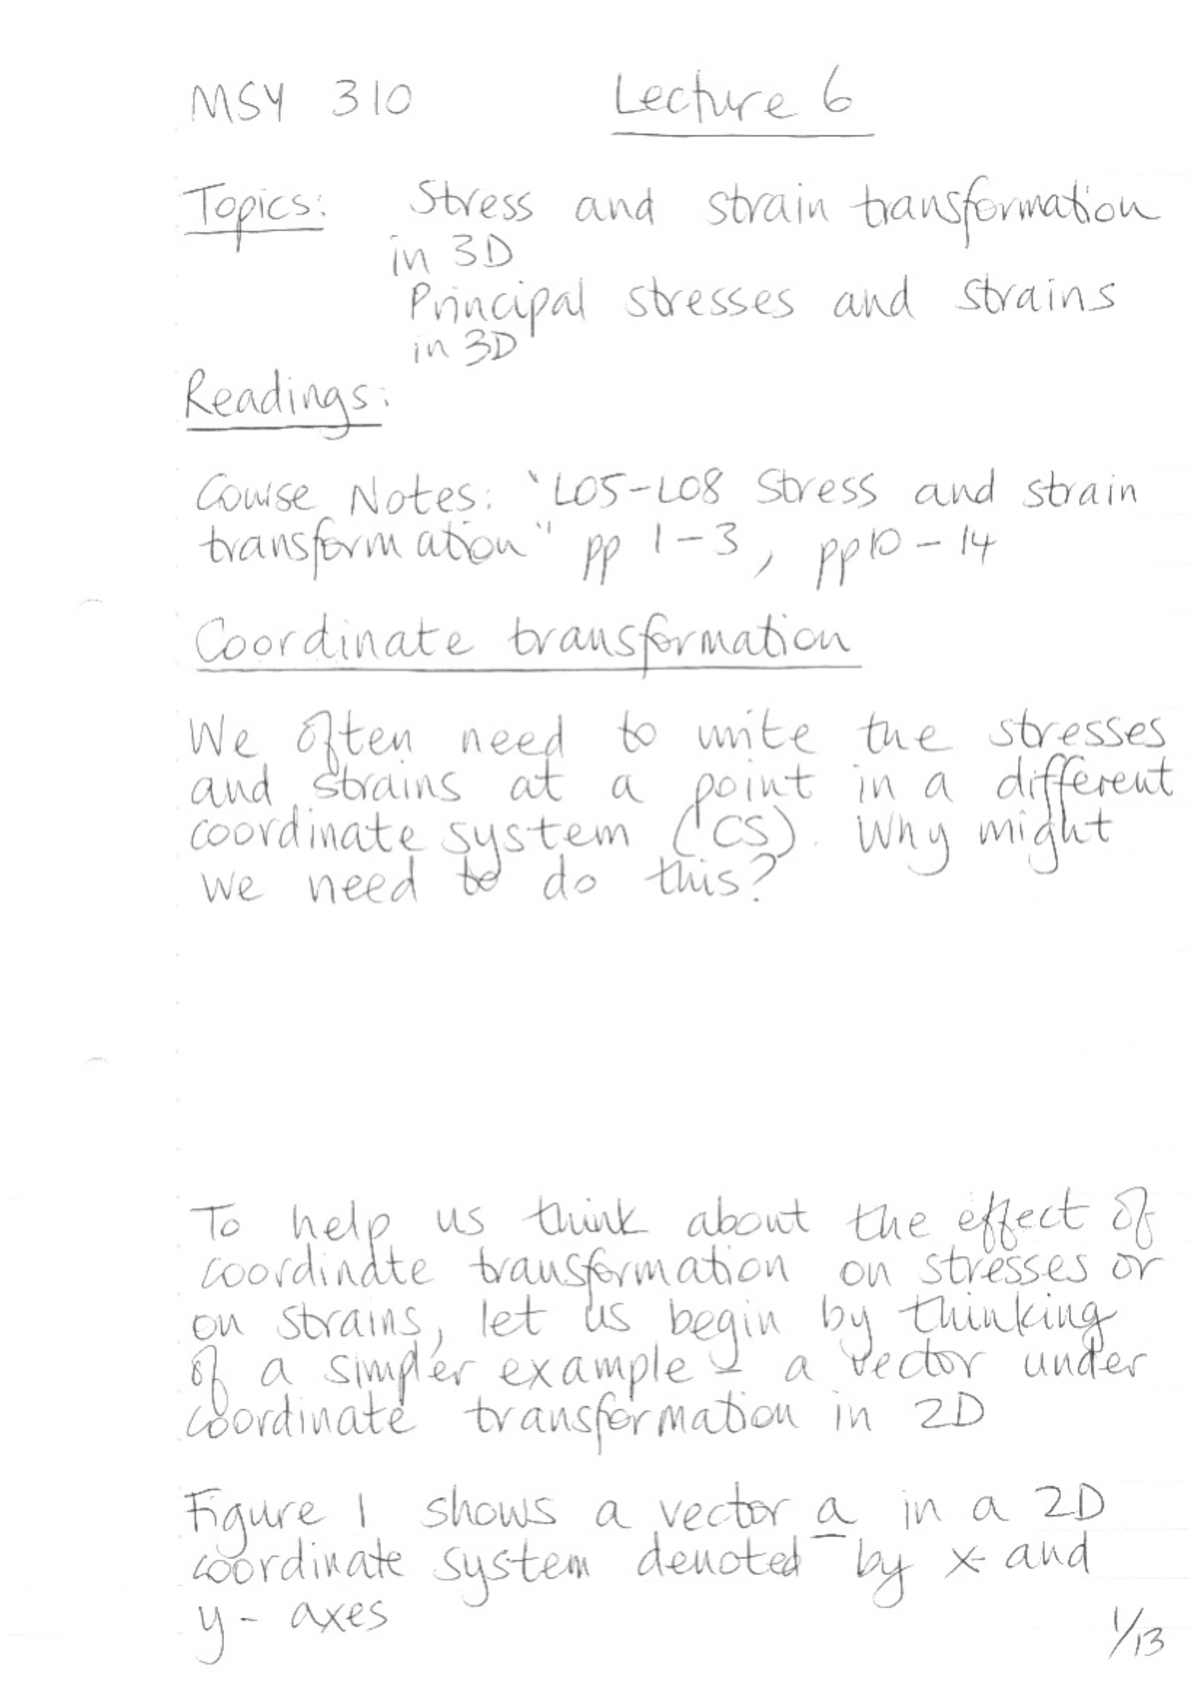 MSY 310 Lecture 6
Topics: Stress and strain transformation
in 3D
Principal stresses and strains
in 3D
Readings:
Course Notes: "L05-L08 Stress and strain
transformation" pp 1-3, pp10-14
Coordinate transformation
We often need to write the stresses
and strains at a point in a different
coordinate system (CS). Why might
we need to do this?
To help us think about the effect of
coordinate transformation on stresses or
on strains, let us begin by thinking
of a simpler example - a vector under
coordinate transformation in 2D
Figure 1 shows a vector a in a 2D
coordinate system denoted by x- and
y- axes
1/13